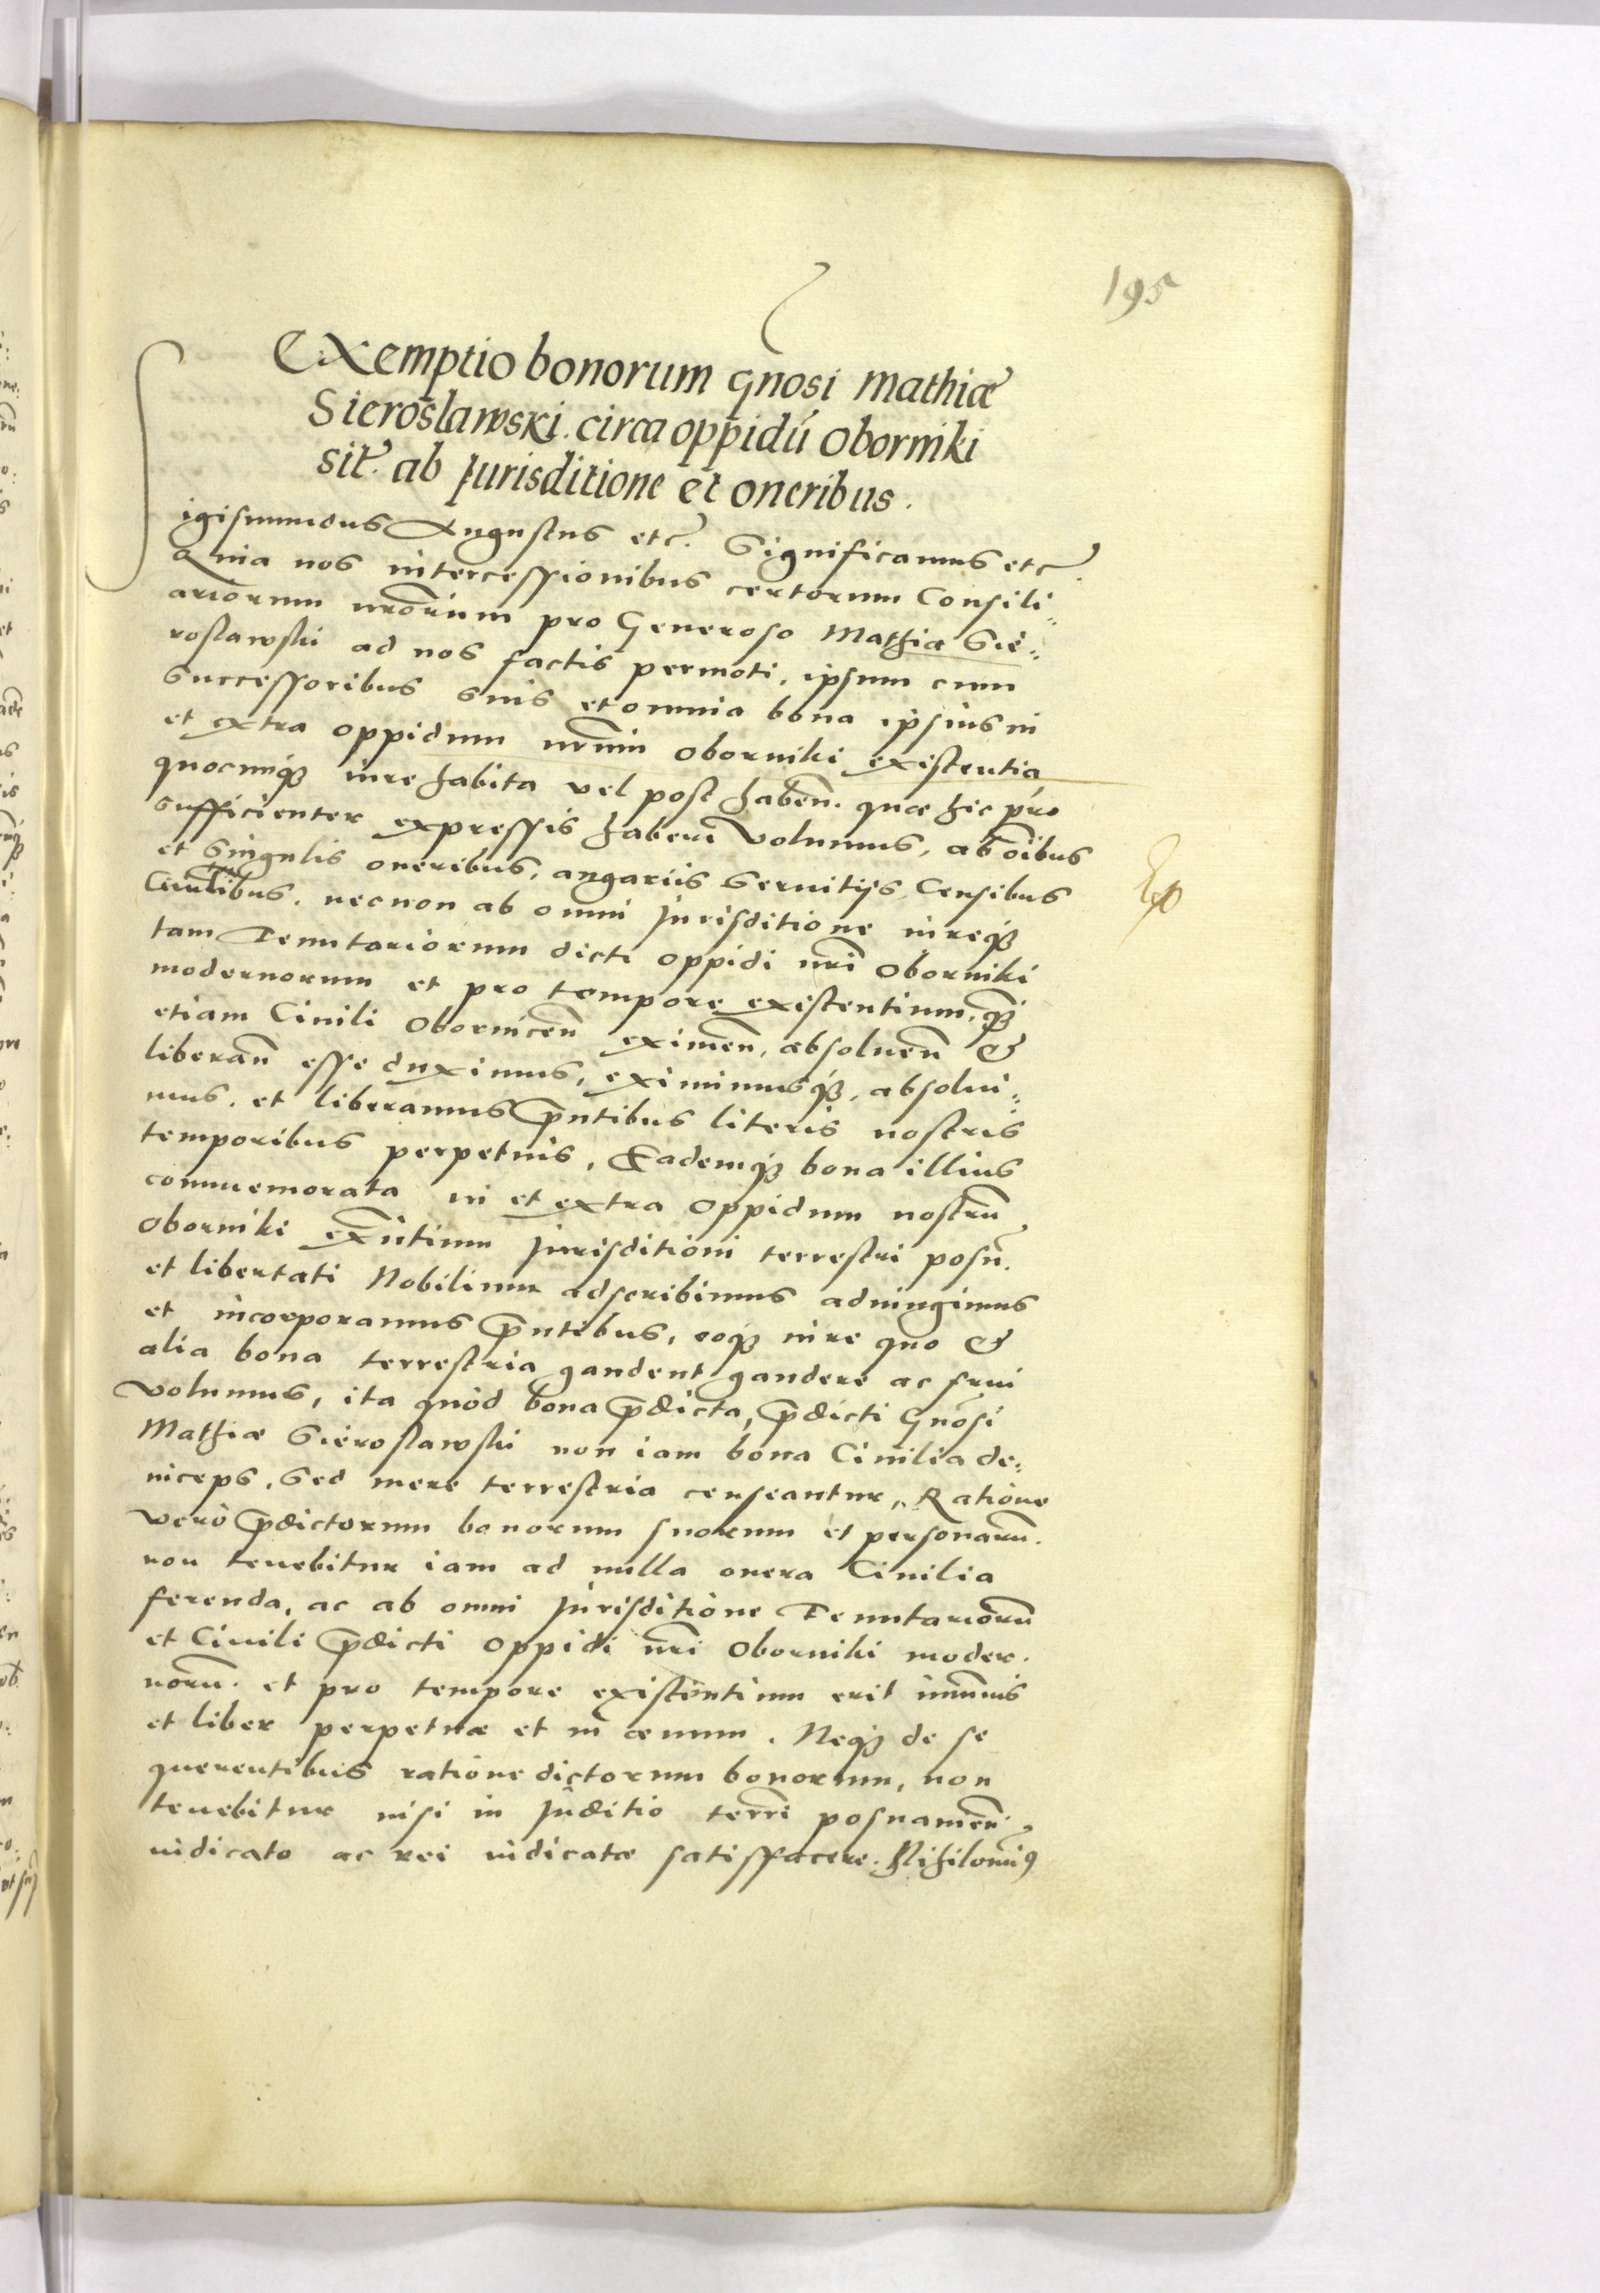 195
Exemptio bonorum gnosi Mathiæ
Sierosławski circa oppidũ Oborniki
sit. ab Jurisditione et oneribus.
Sigismundus Augustus etc. Significamus etc.
Quia nos intercessionibus certorum Consili
ariorum nrorum pro Generoso Mathia Sie
rosławski ad nos factis permoti, ipsum cum
Successoribus suis et omnia bona ipsius in
et extra oppidum nrum Oborniki existentia
quocunq; iure habita vel post haben. quæ hic pro
sufficienter expressis haberi volumus, ab oibus
et singulis oneribus, angariis Servitijs Censibus
Civilibus, necnon ab omni Jurisditione iureq;
tam Tenutariorum dicti oppidi nri Oborniki
modernorum et pro tempore existentium, q̃
etiam Civili Obornicen eximen, absoluen &
liberan esse duximus, eximimusq;, absolui
mus, et liberamus pntibus literis nostris
temporibus perpetuis, Eademq; bona illius
commemorata in et extra oppidum nostrũ
Oborniki exñtium Jurisditioni terrestri posñ.
et libertati Nobilium adscribimus adiungimus
et incorporamus pntibus, eoq; iure quo &
alia bona terrestria gaudent gaudere ac frui
volumus, ita quòd bona pdicta, pdicti Gnosi
Mathiæ Sierosławski non iam bona Civilia de
inceps, sed mere terrestria censeantur, Ratione
verò pdictorum bonorum suorum et personarũ.
non tenebitur iam ad nulla onera Civilia
ferenda, ac ab omni Jurisditione Tenutariorũ
et Civili pdicti oppidi nri Oborniki moder
norũ. et pro tempore existentium erit imunis
et liber perpetuæ et in ævum. Neq; de se
querentibus ratione dictorum bonorum, non
tenebitur nisi in Juditio terri posnamen.
iudicato ac rei iudicatæ satisfacere. Nihilomi9